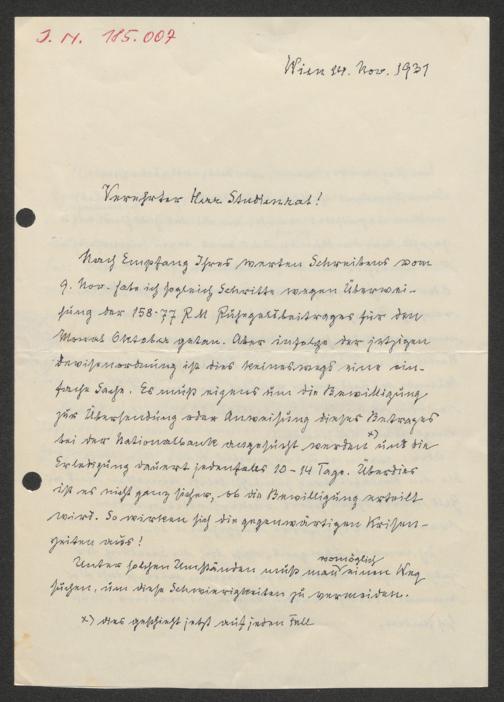 J. N. 185.007
Wien 14. Nov. 1931
Verehrter Herr Studienrat!
Nach Empfang Ihres werten Schreibens vom
9. Nov. habe ich sogleich Schritte wegen Überwei-
sung der 158·77 R.M Ruhegeldbeitrages für den
Monat Oktober getan. Aber infolge der jetzigen
Devisenordnung ist dies keineswegs eine ein-
fache Sache. Es muß eigens um die Bewilligung
zur Übersendung oder Anweisung dieses Betrages
bei der Nationalbank angesucht werden x) und die
Erledigung dauert jedenfalls 10–14 Tage. Überdies
ist es nicht ganz sicher, ob die Bewilligung erteilt
wird. So wirken sich die gegenwärtigen Krisen-
zeiten aus!
Unter solchen Umständen muß man womöglich einen Weg
suchen, um diese Schwierigkeiten zu vermeiden.
x) dies geschieht jetzt auf jeden Fall